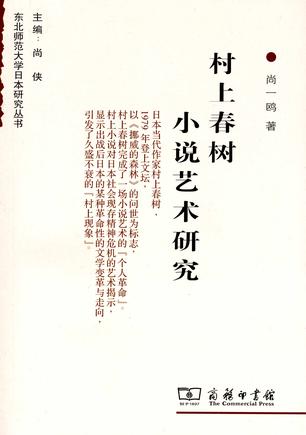 东北师范大学日本研究丛书
主编：尚 侠
尚一鸥 著
村上春树
小说艺术研究
日本当代作家村上春树，
1979 年登上文坛，
以《挪威的森林》的问世为标志，
村上春树完成了一场小说艺术的「个人革命」。
村上小说对日本社会现存精神危机的艺术揭示，
显示出战后日本的某种革命性的文学变革与走向，
引发了久盛不衰的「村上现象」。
商務印書館
The Commercial Press